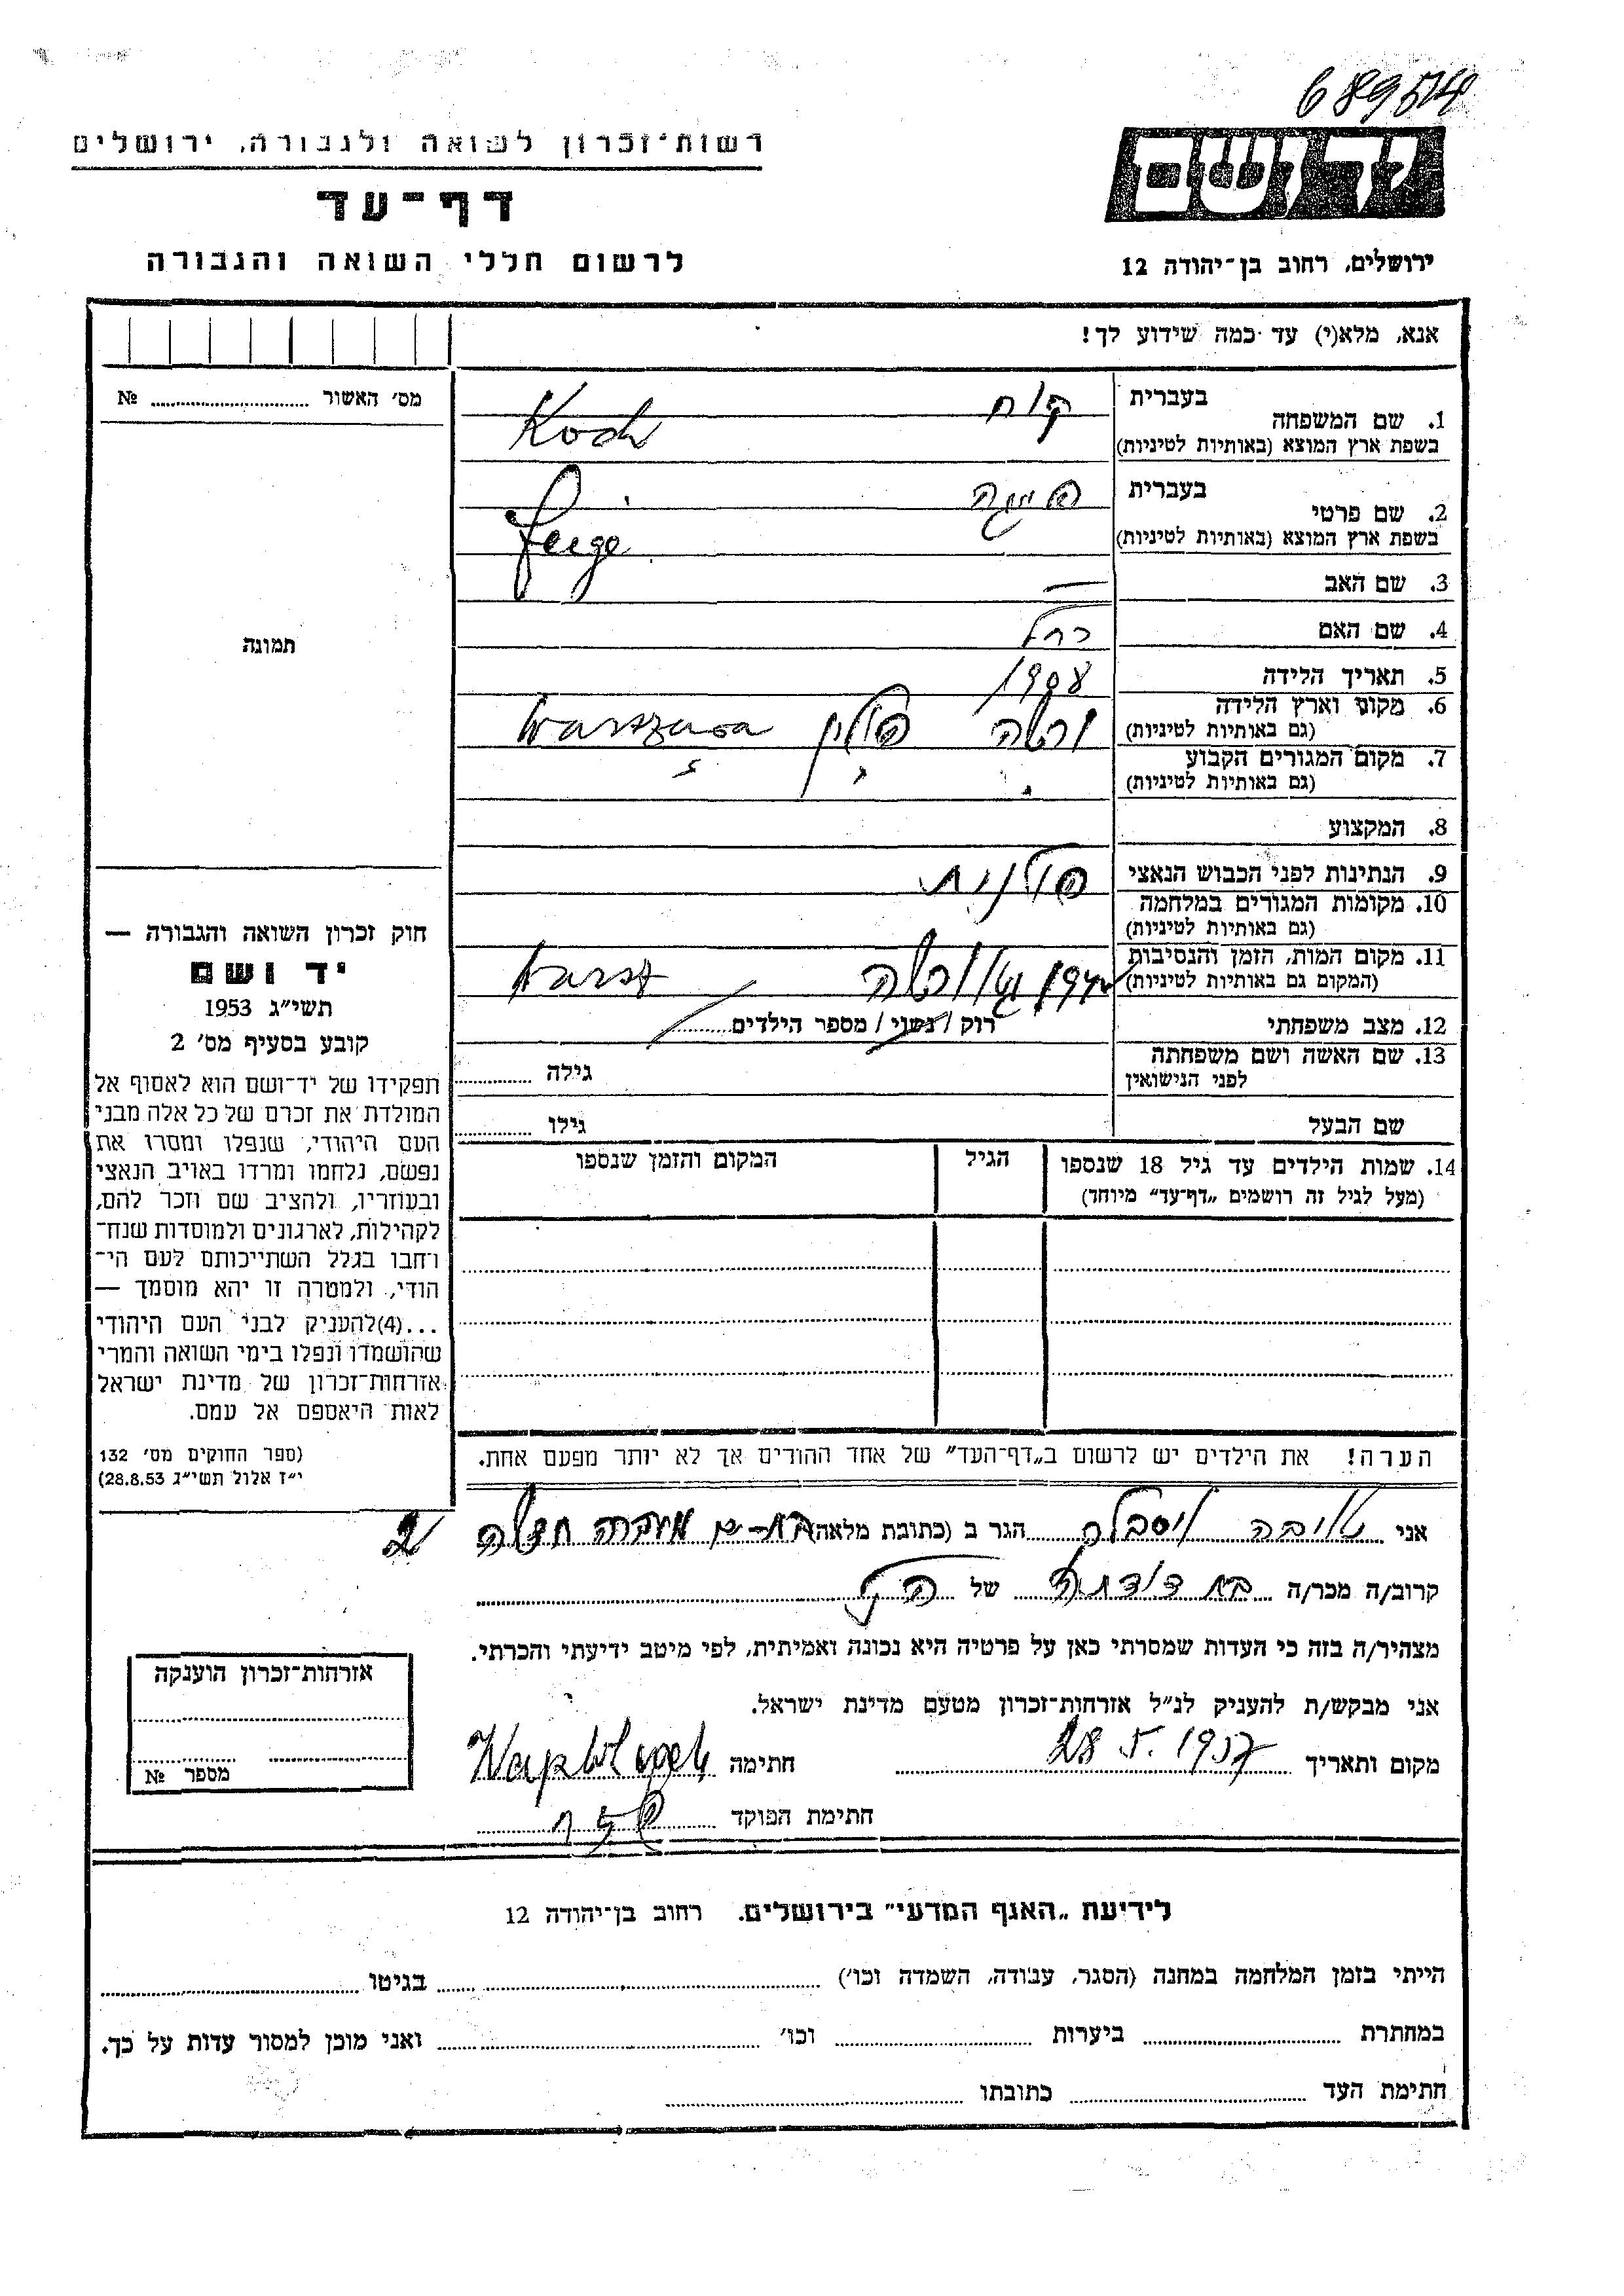 68954
רשות־זכרון לשואה ולגבורה, ירושלים
דף־עד
לרשום חללי השואה והגבורה
יד ושם
ירושלים, רחוב בן־יהודה 12
אנא, מלא(י) עד כמה שידוע לך!
מס׳ האשור № 
תמונה
1. שם המשפחה
בעברית קוח
בשפת ארץ המוצא (באותיות לטיניות) Koch
2. שם פרטי
בעברית פייגה
בשפת ארץ המוצא (באותיות לטיניות) Feige
3. שם האב —
4. שם האם רחל
5. תאריך הלידה 1908
6. מקום וארץ הלידה ורשה פולין Warszawa
(גם באותיות לטיניות)
7. מקום המגורים הקבוע
(גם באותיות לטיניות)
8. המקצוע
9. הנתינות לפני הכבוש הנאצי פולנית
10. מקומות המגורים במלחמה
(גם באותיות לטיניות)
11. מקום המות, הזמן והנסיבות ורשה Warsz
(המקום גם באותיות לטיניות)
12. מצב משפחתי רוק / נשוי / מספר הילדים
13. שם האשה ושם משפחתה
לפני הנישואין גילה
שם הבעל גילו
14. שמות הילדים עד גיל 18 שנספו הגיל המקום והזמן שנספו
(מעל לגיל זה רושמים „דף־עד” מיוחד)
הערה! את הילדים יש לרשום ב„דף־העד” של אחד ההורים אך לא יותר מפעם אחת.
חוק זכרון השואה והגבורה —
יד ושם
תשי״ג 1953
קובע בסעיף מס׳ 2
תפקידו של יד־ושם הוא לאסוף אל
המולדת את זכרם של כל אלה מבני
העם היהודי, שנפלו ומסרו את
נפשם, נלחמו ומרדו באויב הנאצי
ובעוזריו, ולהציב שם וזכר להם,
לקהילות, לארגונים ולמוסדות שנח־
רחבו בגלל השתייכותם לעם הי־
הודי, ולמטרה זו יהא מוסמך —
...(4) להעניק לבני העם היהודי
שהושמדו ונפלו בימי השואה והמרי
אזרחות־זכרון של מדינת ישראל
לאות היאספם אל עמם.
(ספר החוקים מס׳ 132
י״ז אלול תשי״ג 28.8.53)
אני הגר ב (כתובת מלאה) בת-ים 2
קרוב/ה מכר/ה בת דודתה של הנ״ל
מצהיר/ה בזה כי העדות שמסרתי כאן על פרטיה היא נכונה ואמיתית, לפי מיטב ידיעתי והכרתי.
אני מבקש/ת להעניק לנ״ל אזרחות־זכרון מטעם מדינת ישראל.
מקום ותאריך 28 5. 1957 חתימה
חתימת הפוקד
אזרחות־זכרון הוענקה
מספר №
לידיעת „האגף המדעי” בירושלים. רחוב בן־יהודה 12
הייתי בזמן המלחמה במחנה (הסגר, עבודה, השמדה וכו׳) בגיטו
במחתרת ביערות וכו׳ ואני מוכן למסור עדות על כך.
חתימת העד כתובתו